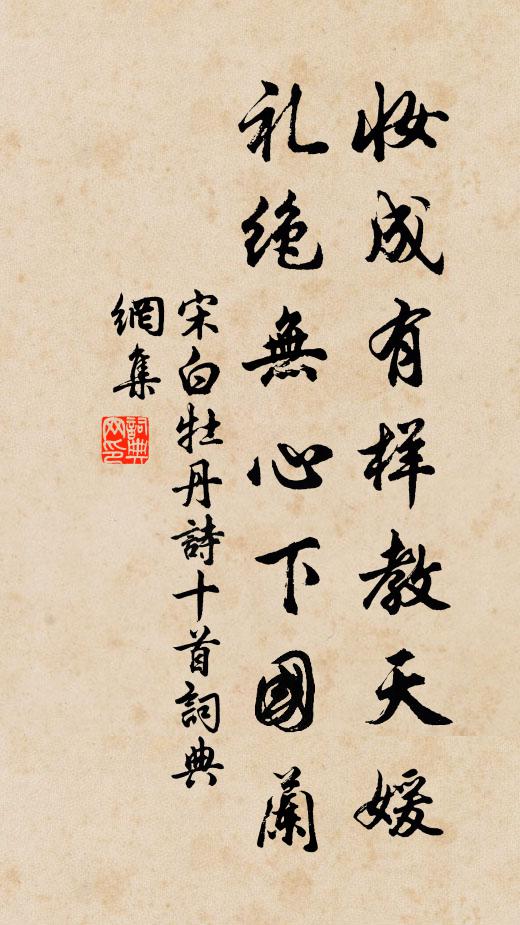 妆成有样教天媛
礼绝無心下國蘭
宋白牡丹詩十首詞典
網集
詞典
网印